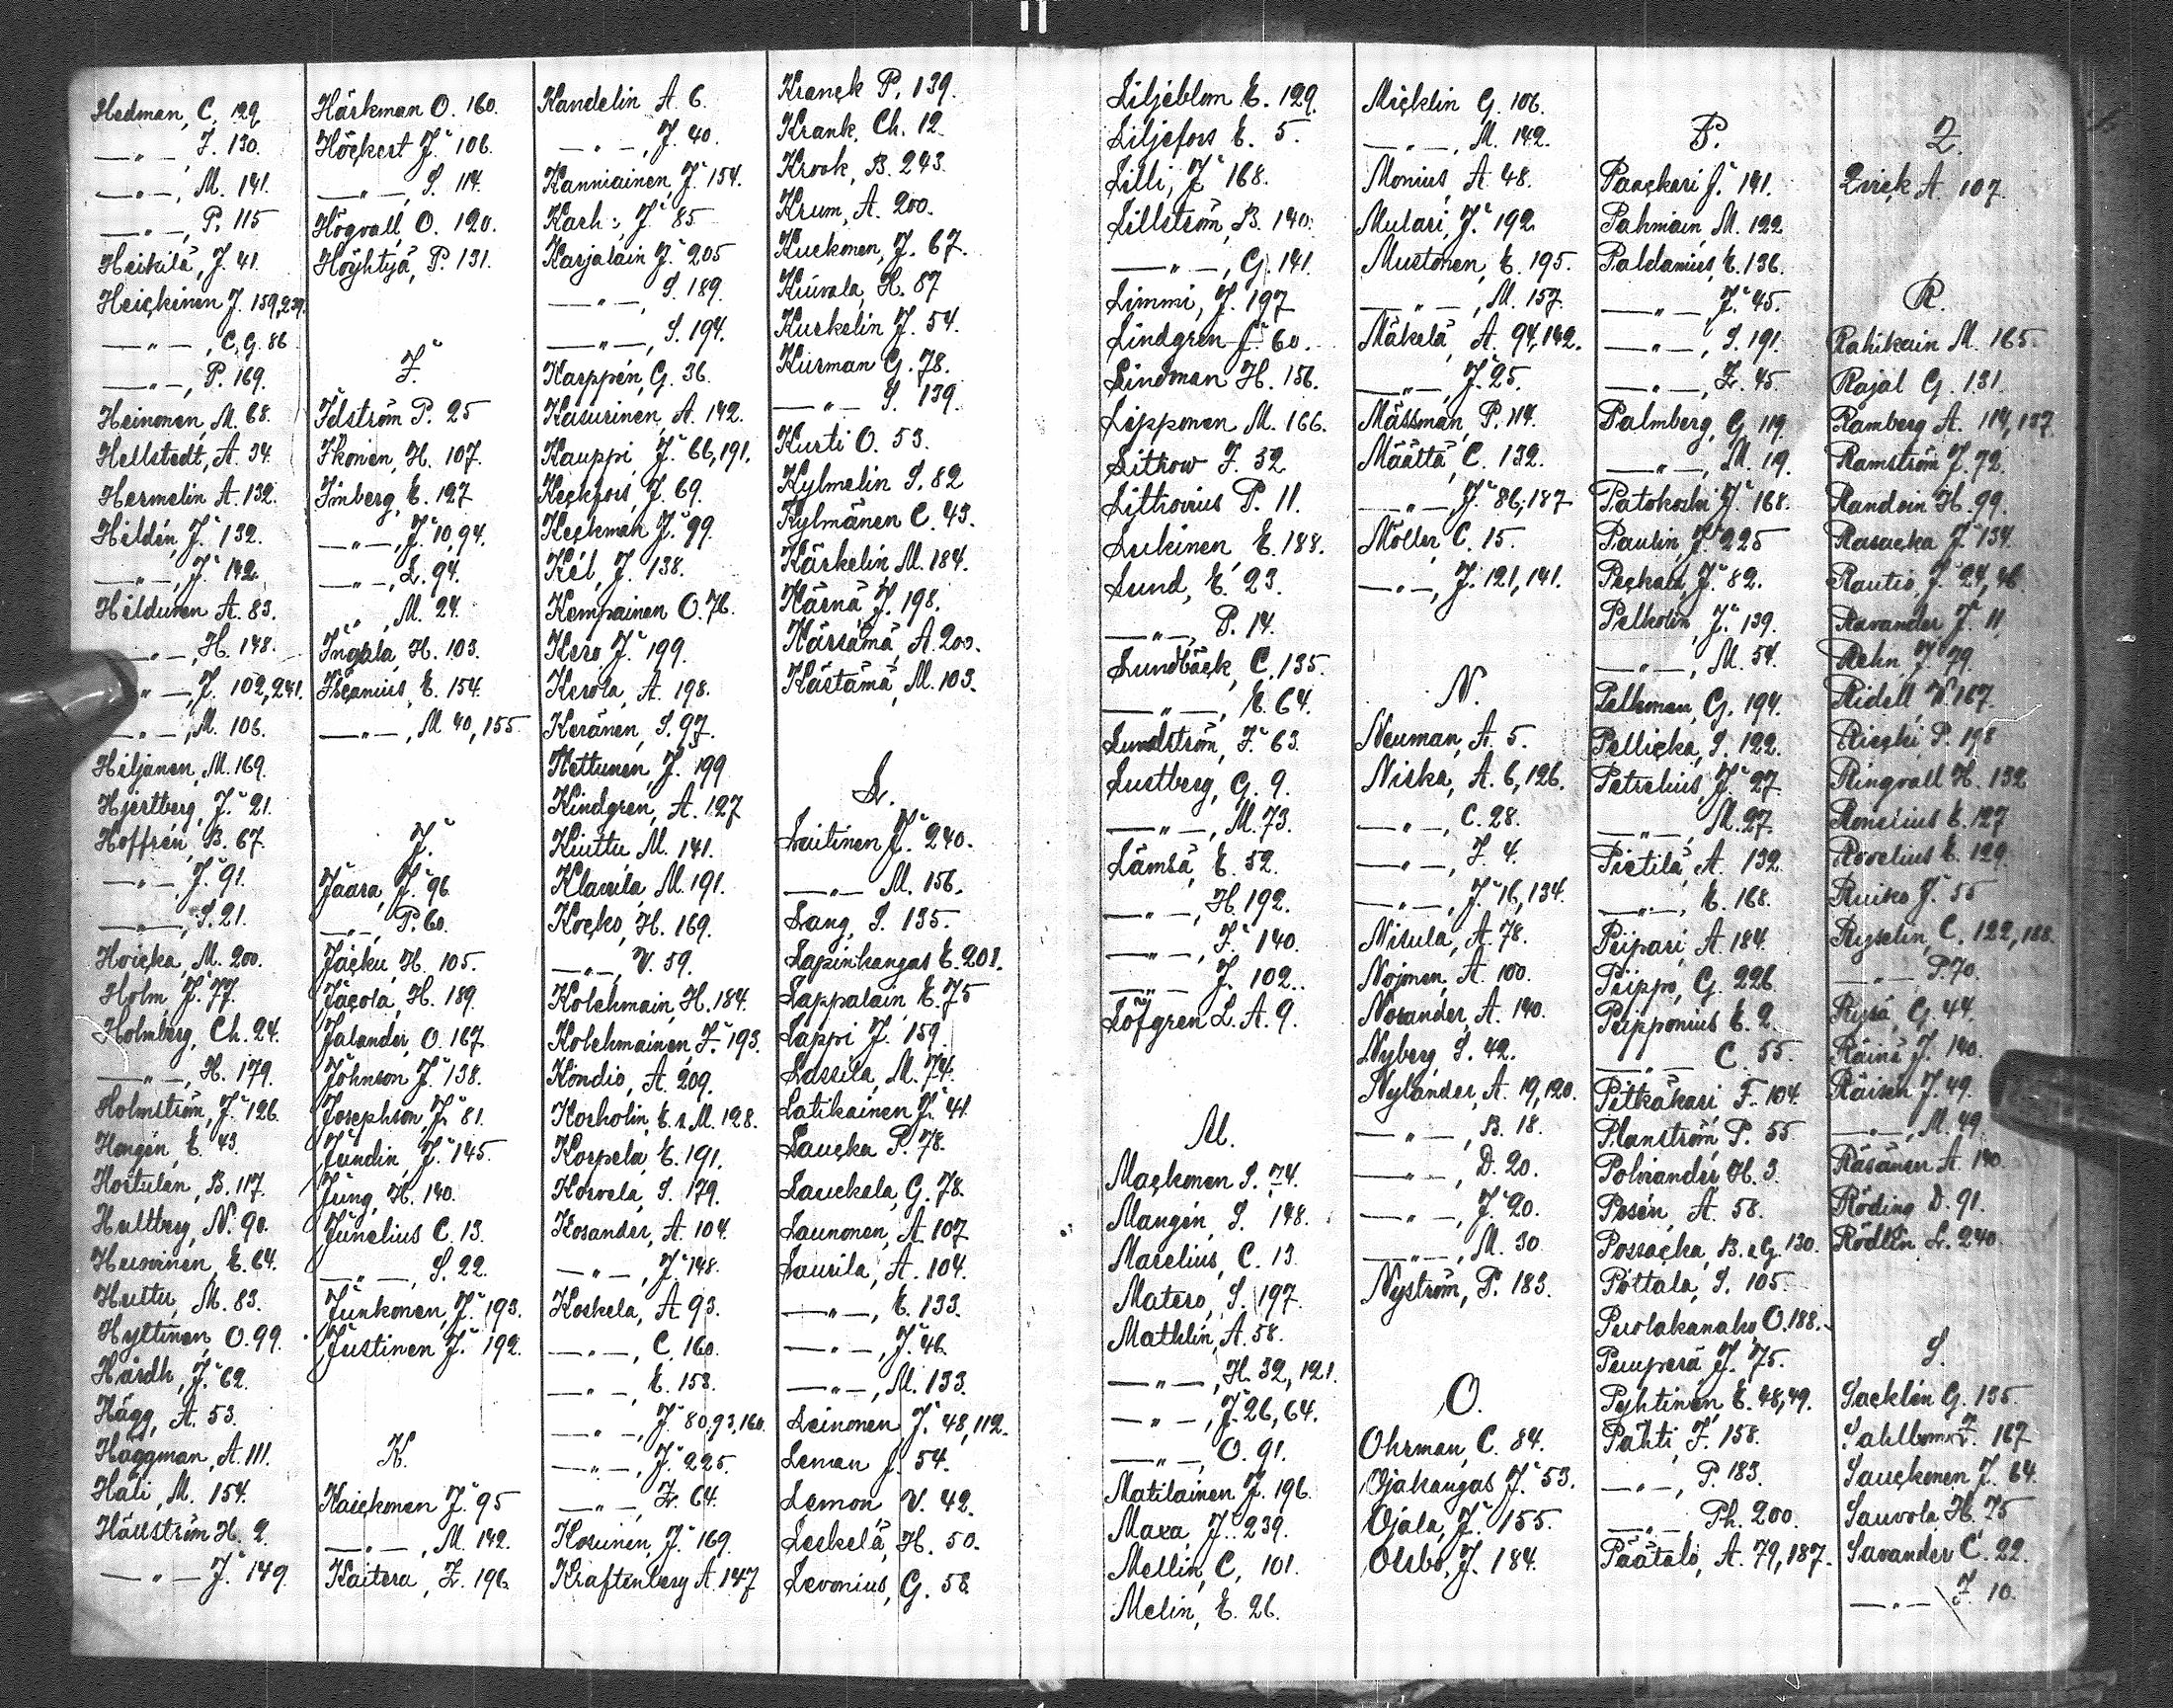 Hedman, C. 129.
—„—, J. 130.
—„—, M. 141.
—„—, P. 115
Heikilä, J. 41.
Heickinen J. 159, 239.
—„—, C.G. 86
—„—, P. 169.
Heinonen, M. 68.
Hellstedt, A. 34.
Hermelin A. 132.
Hildén, J. 132.
—„—, J. 142.
Hilduren A. 83.
—„—, H. 148.
„—, J. 102, 241.
„—, M. 106.
Hiljanen, M. 169.
Hjertberg, J. 21.
Hoffrén, B. 67.
—„— J. 91.
—„—, S. 21.
Hoicka, M. 200.
Holm J. 77.
Holmberg, Ch. 24.
—„—, H. 179.
Holmström, J. 126.
Hongén, E. 43.
Hortulan, B. 117.
Hultberg, N. 90.
Huovinen, E. 64.
Huttu, M. 83.
Hyttinen, O. 99.
Hårdh, J. 62.
Hägg, A. 53.
Häggman, A. 111.
Häli, M. 154.
Hällström H. 2.
—„— J. 149.
Härkman O. 160.
Höckert J. 106.
—„—, S. 114.
Högvall, O. 120.
Höyhtyä, P. 131.
I.
Idström P. 25
Ikonen, H. 107.
Imberg, E. 127
—„—, J. 10, 94.
—„—, L. 94.
„, M. 24.
Ingala, H. 103.
Iheanius, E. 154.
—„—, M 40, 155
J.
Jaara, J. 96
—„—, P. 60.
Jäcku H. 105.
Jacola, H. 189.
Jalander, O. 167.
Johnson J. 138.
Josephson, J. 81.
Jundin, J. 145.
Jung, H. 140.
Junelius C. 13.
—„—, S. 22.
Junkonen, J. 193.
Justinen J. 192.
K.
Kaickonen J. 95
—„—, M. 142.
Kaitera, Z. 196.
Kandelin A. 6.
—„—, J. 40.
Kanniainen, J. 154.
Karh:, J. 85
Karjalain J. 205
—„—, S. 189.
—„—, S. 194.
Karppén, G. 36.
Kasurinen, A. 142.
Kauppi, J. 66, 191.
Keckfors, J. 69.
Keckman J. 99.
Kél, J. 138.
Kempainen O. 76.
Kero J. 199.
Kerola, A. 198.
Keränen, S. 97.
Kettunen, J. 199
Kindgren, A. 127
Kiuttu M. 141.
Klaurila, M. 191.
Kocko, H. 169.
—„—, V. 59.
Kolehmain, H. 184.
Kolehmainen, J. 193.
Kondio, A. 209.
Korholin, E. & M. 128.
Korpela, E. 191.
Korvela, S. 179.
Kosander, A. 104.
—„—, J. 148.
Koskela, A. 93.
—„—, C. 160.
—„—, E. 158.
—„—, J. 80, 93, 160.
—„—, J. 225.
—„—, Z. 64.
Kosunen, J. 169.
Kraftenberg A. 147
Kranck P. 139.
Krank, Ch. 12.
Krook, B. 243.
Krum, A. 200.
Kuckonen, J. 67.
Kiuvala, H. 87
Kurkelin J. 54.
Kurman G. 78.
—„— S. 139.
Kurti O. 53.
Kylmelin S. 82
Kylmänen C. 43.
Kärkelin M. 184.
Kärnä J. 198.
Kärsämä, A. 200.
Kästämä, M. 103.
L.
Laitinen J. 240.
—„— M. 156.
Lang, S. 135.
Lapinkangas E. 208.
Lappalain, E. 75
Lappi J. 159.
Lassila, M. 74.
Latikainen J. 41.
Laucka P. 78.
Lauckala, G. 78.
Launonen, A. 107
Laurila, A. 104.
—„—, E. 133.
—„—, J. 46.
—„—, M. 133.
Leinonen, J. 48, 112.
Leman J. 54.
Lemon V. 42.
Leskelä, H. 50.
Levonius, G. 58.
Liljeblom E. 129.
Liljefors E. 5.
Lilli, J. 168.
Lillström, B. 140.
—„—, G. 141.
Limmi, J. 197
Lindgren J. 60.
Lindman H. 156.
Lipponen M. 166.
Litrow F. 32
Lithovius P. 11.
Luikinen E. 188.
Lund, E. 23.
—„— P. 14.
Lundbäck, C. 135.
—„—, E. 64.
Lundström, J. 63.
Lustberg, G. 9.
—„—, M. 73.
Lämsä, E. 52.
—„—, H. 192.
—„—, J. 140.
—„—, J. 102.
Löfgren L. A. 9.
M.
Mackonen S. 74.
Mangén, S. 148.
Marelius, C. 13.
Matero, S. 197.
Mathlin, A. 58.
—„—, H. 32, 121.
—„—, J. 26, 64.
—„—, O. 91.
Matilainen J. 196.
Maxa, J. 239.
Mellin, C, 101.
Melin, E. 26.
Micklin G. 106.
—„—, M. 142.
Monius, A. 48.
Mulari, J. 192.
Mustonen, E. 195.
—„—, M. 157.
Mäkelä, A. 94, 142.
—„—, J. 25.
Mässman, P. 114.
Määttä, C. 132.
—„—, J. 86, 187
Möller C. 15.
—„—, J. 121, 141.
N.
Neuman, A. 5.
Niska, A. 6, 126.
—„—, C. 28.
—„—, J. 4.
—„—, J. 16, 134.
Nisula, A. 78.
Nojmen, A. 100.
Norander, A. 140.
Nyberg, S. 42.
Nylander, A. 19, 120.
—„—, B. 18.
—„—, D. 20.
—„—, J. 20.
—„—, M. 30
Nyström, P. 183.
O.
Ohrman, C. 84.
Ojakangas J. 53.
Ojala, J. 155.
Olsbo, J. 184.
P.
Paackari J. 141.
Pahmain, M. 122
Paldanius, E. 136.
—„—, J. 45.
—„—, S. 191.
—„—, Z. 45.
Palmberg, G. 119.
—„—, M. 19.
Patokoski J. 168.
Paulin, J. 225
Peckala, J. 82.
Pelkolin, J. 139.
—„—, M. 54.
Pelkman, G. 194.
Pellicka, S. 122.
Petrelius, J. 27.
—„—, M. 27.
Pietilä, A. 132.
—„—, E. 168.
Piipari, A. 184.
Piippo, G. 226.
Piipponius E. 2.
—„— C. 55.
Pitkäkari F. 104.
Planström, P. 55
Polviander H. 3.
Posén, A. 58.
Possacka, B. & G. 130.
Pottala, S. 105.
Puolakanaho, O. 188.
Pumperä, J. 75.
Pyhtinen E. 48, 49.
Pähti, J. 158.
—„—, P. 183.
—„— Ph. 200.
Päätalo, A. 79, 187.
Q.
Qvick A. 107.
R.
Rahikain M. 165.
Rajal G. 131.
Ramberg A. 114, 157.
Ramström J. 72.
Randoin H. 99.
Rasacka J. 134.
Rautio, J. 24, 46.
Ravander J. 11.
Rehn J. 79.
Ridell V. 167.
Riecki P. 198
Ringvall H. 132
Ronelius E. 127
Rovelius E. 129.
Ruiko J. 55
Ryselin, C. 122, 188.
—„— P. 70.
Rysä, G. 44.
Räinä J. 140.
Räisen J. 49.
—„—, M. 49.
Räsänen A. 140.
Röding D. 91.
Rödlin L. 240.
S.
Sacklén G. 135.
Sahlbom J. 167
Sauckonen J. 64.
Sauvola H. 75
Savander C. 22.
—„— J. 10.